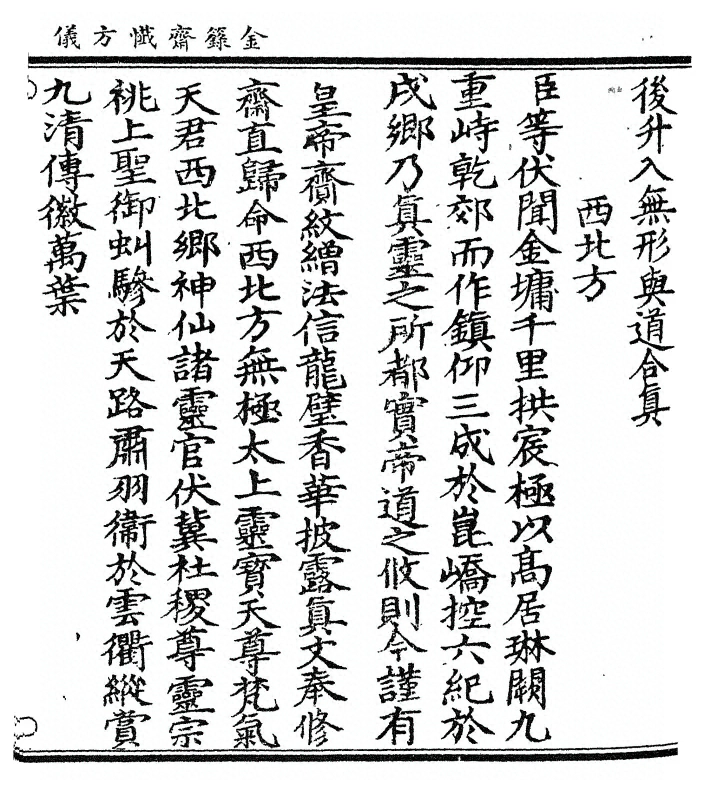 金籙齋懺方儀
後升入無形與道合眞
西北方
臣等伏聞金墉千里拱宸極以髙居琳闕九
重峙乾郊而作鎮仰三成於崑嶠控六紀於
戌鄉乃眞靈之所都實帝道之攸則今謹有
皇帝齎紋繒法信龍璧香華披露眞文奉修
齋直歸命西北方無極太上靈寶天尊梵氣
天君西北鄉神仙諸靈官伏冀社稷尊靈宗
祧上聖御虯驂於天路肅羽衛於雲衢縱賞
九清傳徽萬葉